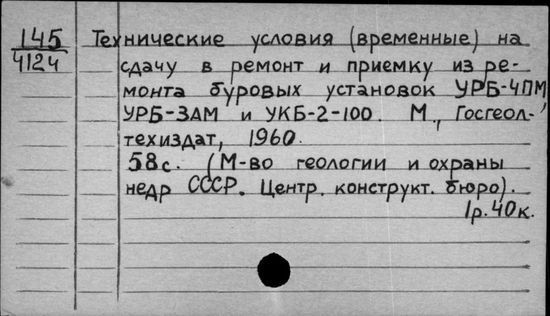 145 Технические условия (временные) на
412ч сдачу в ремонт и приемку из ре-
монта буровых установок УРБ-4ПМ,
УРБ-ЗАМ и УКБ-2-100. М., Госгеол-
техиздат, 1960.
58с. (М-во геологии и охраны
недр СССР. Центр. конструкт. бюро).
1р.40к.